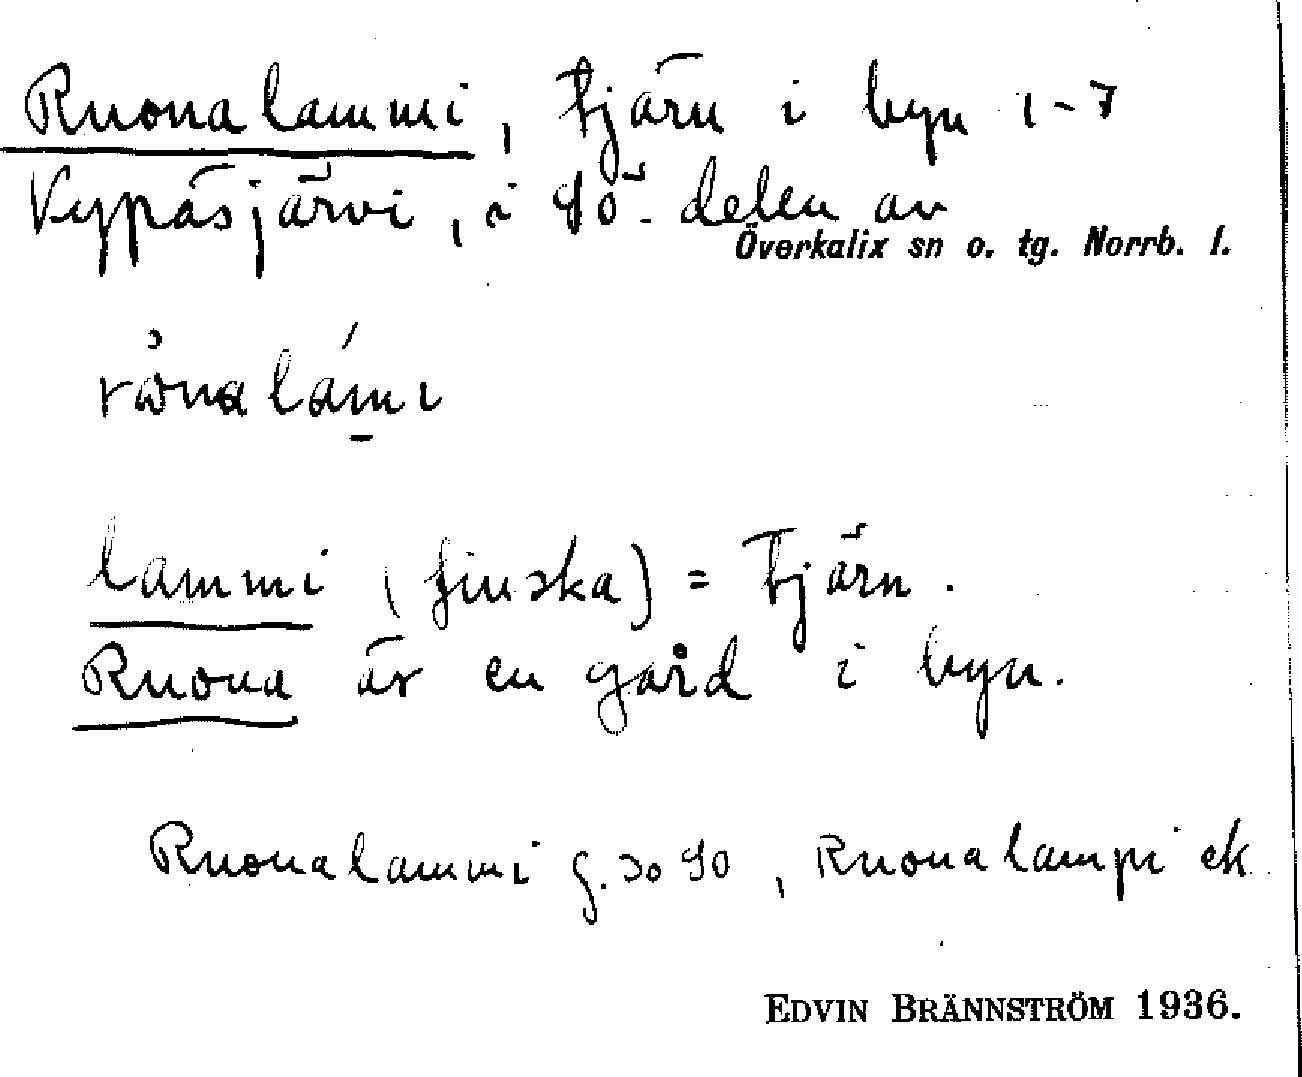 Ruonalammi, tjärn i byn 1-7
Vypäsjärvi, i SÖ-delen av
Överkalix sn o. tg. Norrb. l.
lammi (finska) = tjärn.
Ruona är en gård i byn.
Ruonalammi g. 30 SO, Ruonalampi ek
EDVIN BRÄNNSTRÖM 1936.